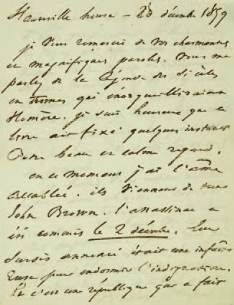 Hauteville house — 20 décembre 1859
je vous remercie de vos charmantes
et magnifiques paroles. Vous me
parlez de la Légende des Siècles
en termes qui enorgueilliraient
Homère. je suis heureux que ce
livre ait fixé quelques instants
votre beau et calme regard.
en ce moment j'ai l'âme
accablée. ils viennent de tuer
John Brown. l'assassinat a
été commis le 2 décembre. Le
sursis annoncé était une infâme
ruse pour endormir l'indignation.
Et c'est une république qui a fait